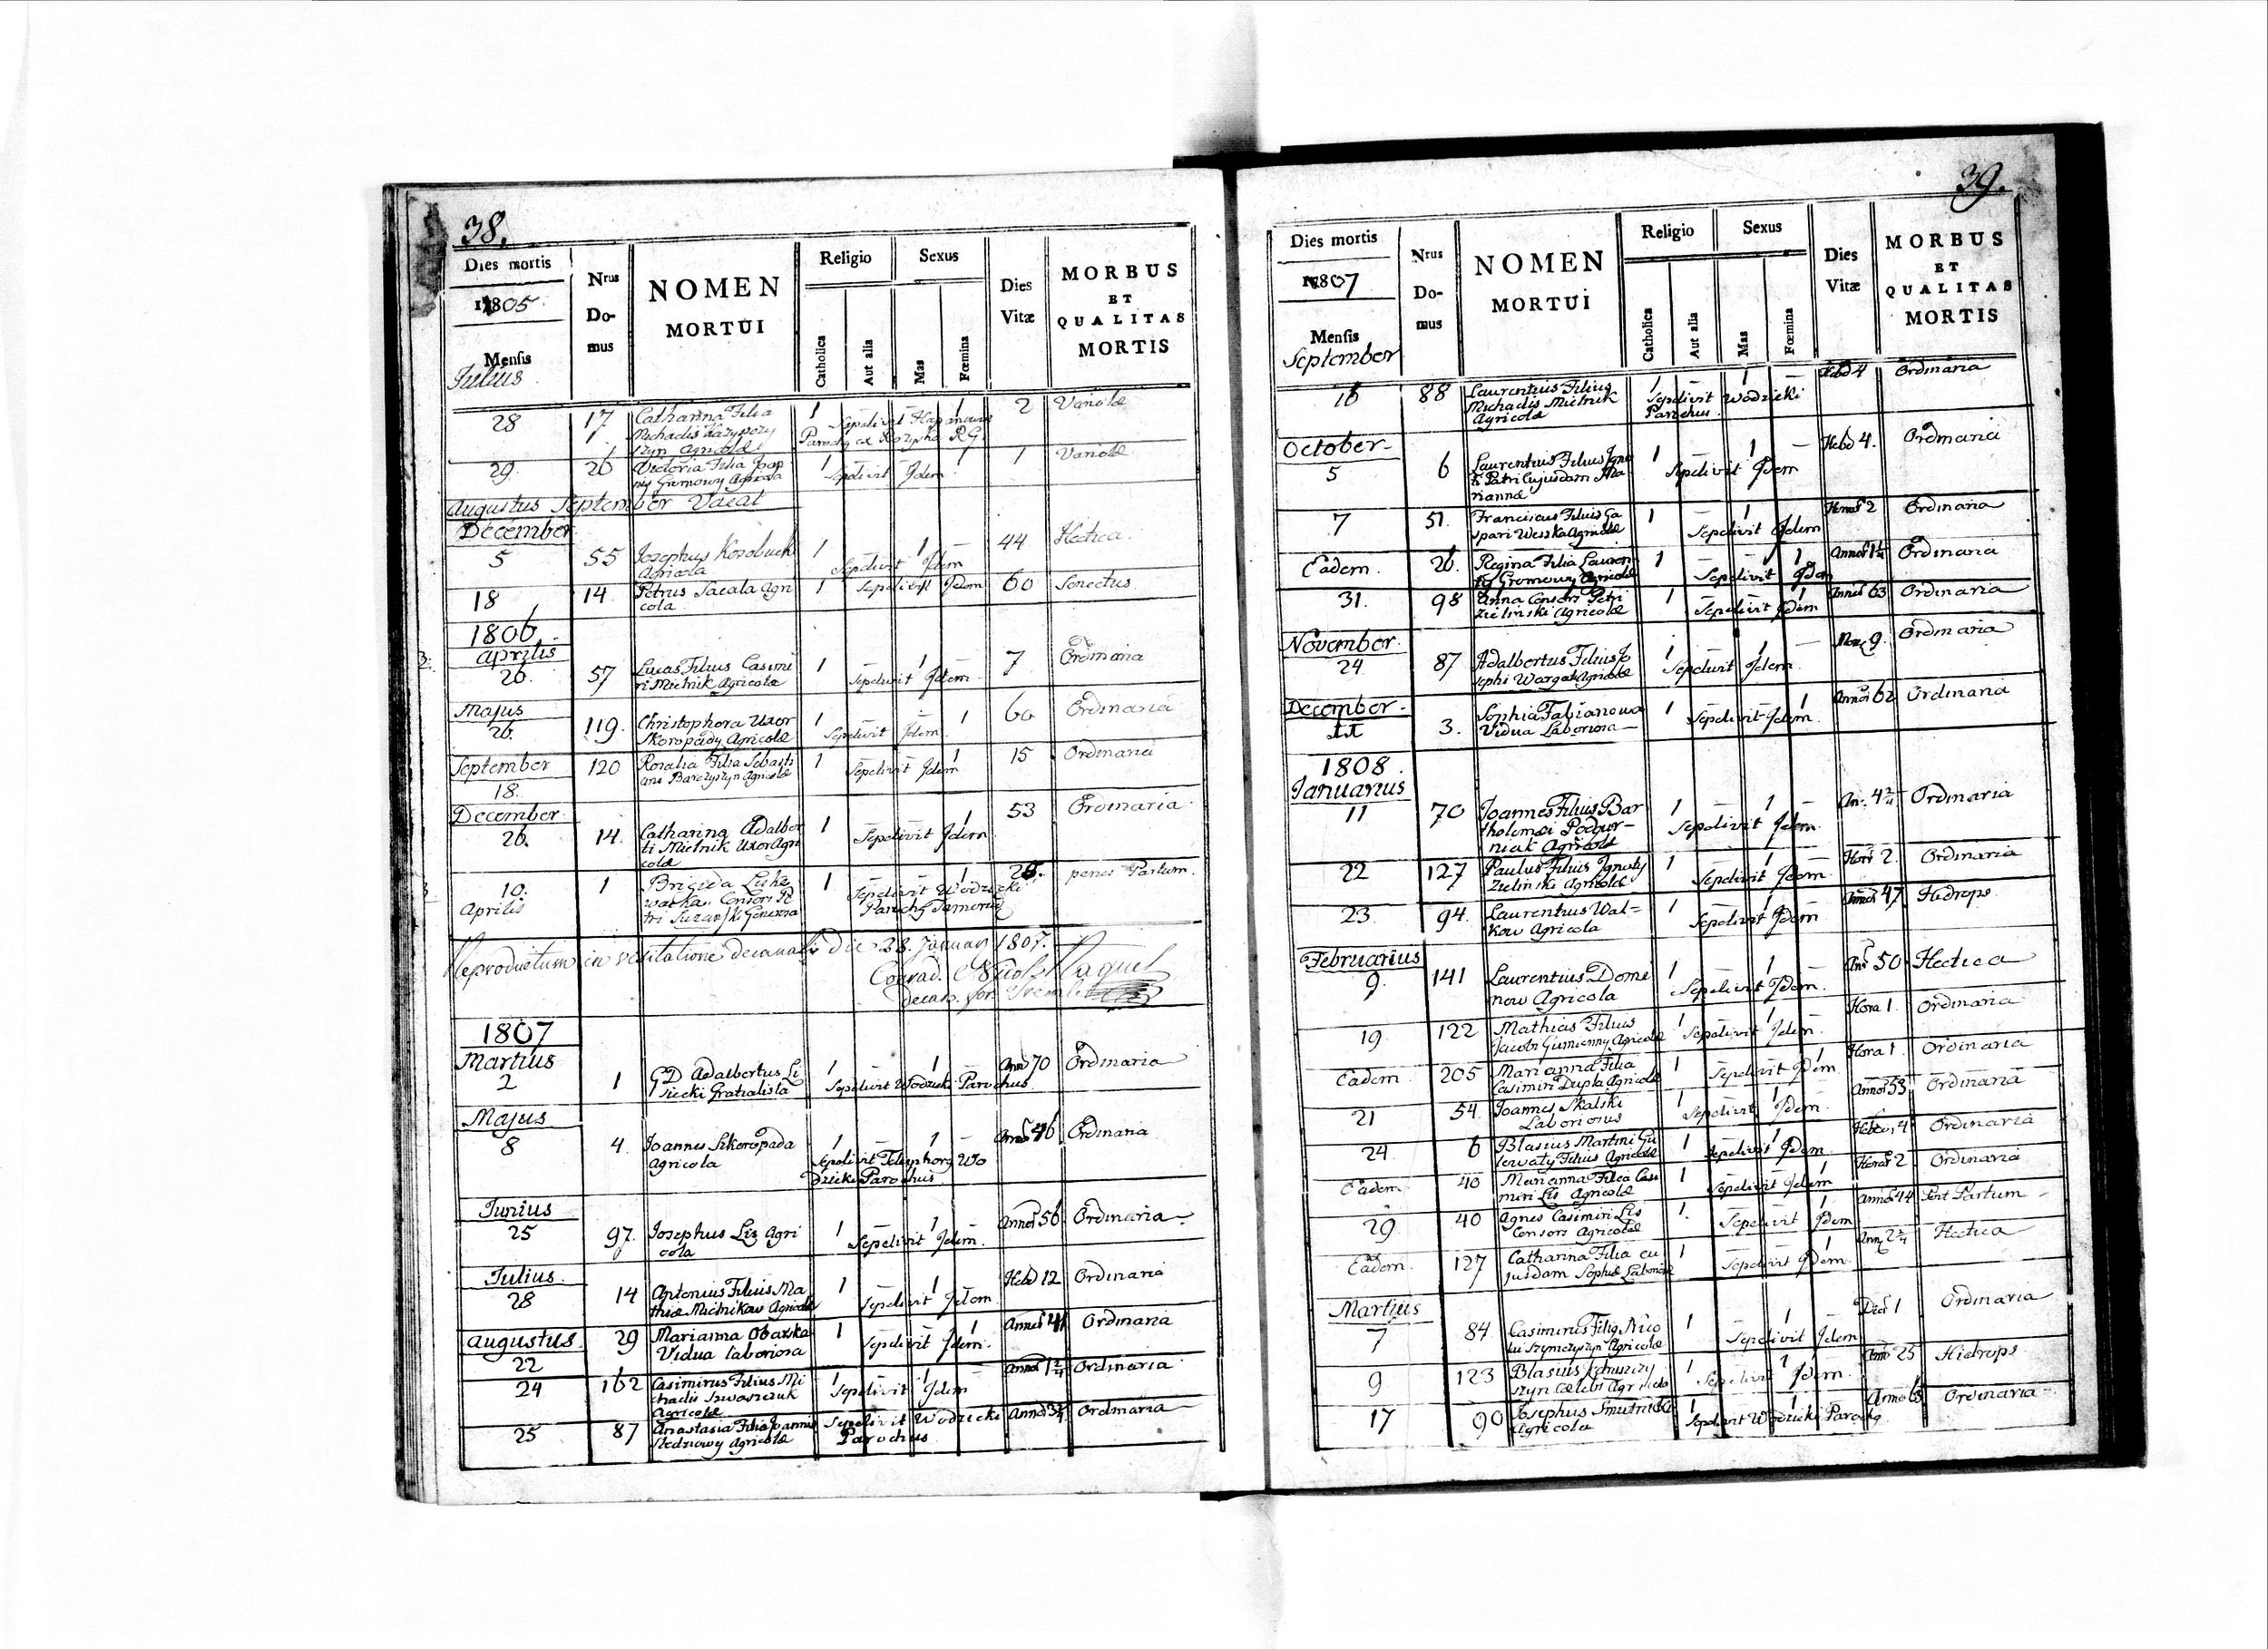 38.
Dies mortis
1805.
Mensis
Julius
Nrus
Do-
mus
NOMEN
MORTUI
Religio
Catholica
Aut alia
Sexus
Mas
Fœmina
Dies
Vitæ
MORBUS
ET
QUALITAS
MORTIS
28 17 Catharina Filia 1 1 2 Variolæ
Michaelis
szyn Agricolæ
29. 26 Victoria Filia 1 Sepelivit Idem 1 1 Variolæ
Gromowy Agricola
Augustus September Vacat
December
5 55 Josephus Korobuch 1 Sepelivit Idem 1 – 44 Hectica.
Agricola
18 14. Petrus Sacala Agri 1 Sepelivit Idem 60 Senectus.
cola
1806.
Aprilis
26. 57 Lucas Filius Casimi 1 – 1 Sepelivit Idem 7 Ordinaria
ri Mietnik Agricolæ
Majus
26. 119. Christophora Uxor 1 – – 1 Sepelivit Idem 60 Ordinaria
Skoropady Agricolæ
September
18. 120 Rosalia Filia Sebasti 1 – – 1 Sepelivit Idem 15 Ordinaria
ani Barczyszyn Agricolæ
December
26. 14. Catharina Adalber 1 – – 1 Sepelivit Idem 53 Ordinaria.
ti Mietnik Uxor Agri
colæ
10. Aprilis 1 Brigida 1 – – 1 Sepelivit Wodzicki 28. penes Partum.
Consors Pe
tri
Reproductum in visitatione decanali die 28. Januar 1807.
Conrad.
Decan. for.
1807
Martius
2 1 GD Adalbertus Li 1 – 1 Sepelivit Wodzicki Parochus Anno 70 Ordinaria
siecki Gratialista
Majus
8 4. Joannes Szkoropada 1 – 1 – Annos 46 Ordinaria
Agricola Sepelivit Telesphorg Wo
dzicki Parochus
Junius
25 97. Josephus Lis Agri 1 – 1 Sepelivit Idem. Annos 56 Ordinaria.
cola
Julius.
28 14 Antonius Filius Ma 1 – 1 Sepelivit Idem Hebd 12 Ordinaria
thiæ Mietnikow Agricolæ
Augustus.
22 29 Marianna Obarska 1 – – 1 Sepelivit Idem. Annos 41 Ordinaria
Vidua laboriosa
24 162 Casimirus Filius Mi 1 – 1 Sepelivit Idem Ordinaria
chaelis Szwarczuk
Agricolæ
25 87 Anastasia Filia Joannis Sepelivit Wodzicki Ordinaria
Sledziowy Agricolæ Parochus
39.
Dies mortis
1807
Mensis
September
Nrus
Do-
mus
NOMEN
MORTUI
Religio
Catholica
Aut alia
Sexus
Mas
Fœmina
Dies
Vitæ
MORBUS
ET
QUALITAS
MORTIS
16 88 Laurentius Filius 1 – 1 – Hebd 4 Ordinaria
Michaelis Mietnik Sepelivit Wodzicki
Agricolæ Parochus
October
5 6 Laurentius Filius Igno 1 – 1 – Sepelivit Idem Hebd 4. Ordinaria
ti Patri Cujusdam Ma
riannæ
7 51. Franciscus Filius Ga 1 – 1 Sepelivit Idem 2 Ordinaria
spari Weszka Agricolæ
Eadem. 26. Regina Filia Lauren 1 – – 1 Sepelivit Idem Ordinaria
tij Gromowy Agricolæ
31. 98 Anna Consors Petri 1 – – 1 Sepelivit Idem Annos 63 Ordinaria
Zielinski Agricolæ
November.
24. 87 Adalbertus Filius Jo 1 – 1 – Sepelivit Idem 9. Ordinaria
sephi Wargat Agricolæ
December.
3. Sophia Fabianowa 1 – – 1 Sepelivit Idem. Annos 62 Ordinaria
Vidua Laboriosa
1808.
Januarius
11 70 Joannes Filius Bar 1 – 1 – Sepelivit Idem Ordinaria
tholomæi Podgur-
niak Agricolæ
22 127 Paulus Filius Ignatij 1 – 1 – Sepelivit Idem Hor 2. Ordinaria
Zielinski Agricolæ
23. 94. Laurentius Wal= 1 – 1 Sepelivit Idem Annos 47. Hidrops.
kow Agricola
Februarius
9. 141 Laurentius Domi 1 – 1 – Sepelivit Idem. An 50 Hectica
now Agricola
19 122 Mathias Filius 1 – 1 – Sepelivit Idem. Hora 1. Ordinaria
Jacobi Gumienny Agricolæ
Eadem 205 Marianna Filia 1 – – 1 Sepelivit Idem Hora 1. Ordinaria
Casimiri Dupla Agricolæ
21 54. Joannes Skalski 1 – 1 – Sepelivit Idem. Annos 53 Ordinaria
Laboriosus
24 6 Blasius Martini Gu 1 – 1 – Sepelivit Idem 4 Ordinaria
lewaty Filius Agricolæ
Eadem 40 Marianna Filia Casi 1 – – 1 Sepelivit Idem Horas 2 Ordinaria
miri Lis Agricolæ
29 40 Agnes Casimiri Lis 1. – – 1 Sepelivit Idem Annos 44 Post Partum
Consors Agricolæ
Eadem. 127 Catharina Filia cu 1 – – 1 Sepelivit Idem. Hectica
jusdam Sophiæ Laboriosæ
Martius
7 84 Casimirus Filig Nico 1 – 1 Sepelivit Idem Dies 1 Ordinaria
lai Szymczyszyn Agricolæ
9 123 Blasius 1 – 1 – Sepelivit Idem. Anno 25 Hidrops
szyn Cælebs Agricola
17 90 Josephus Smutnicki 1 1 Sepelivit Wodzicki Parochg Ordinaria
Agricola